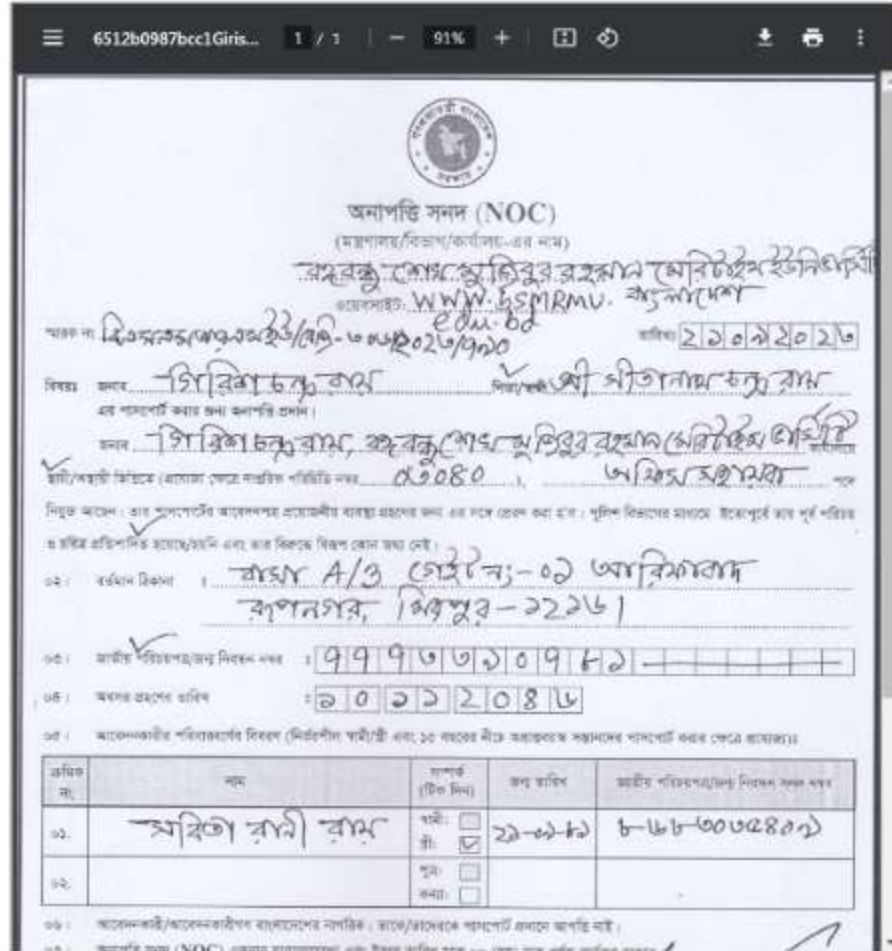 6512b0987bcc1Giris... 1 / 1 91%
গণপ্রজাতন্ত্রী বাংলাদেশ সরকার
অনাপত্তি সনদ (NOC)
(মন্ত্রণালয়/বিভাগ/কার্যালয়-এর নাম)
বঙ্গবন্ধু শেখ মুজিবুর রহমান মেরিটাইম ইউনিভার্সিটি
ওয়েবসাইট: www.bsmrmu. বাংলাদেশ
edu.bd
স্মারক নং তারিখঃ ২১০৯২০২৩
বিষয়ঃ জনাব গিরিশ চন্দ্র রায় পিতা/স্বামী শ্রী সীতানাথ চন্দ্র রায়
এর পাসপোর্ট করার জন্য অনাপত্তি প্রদান।
জনাব গিরিশ চন্দ্র রায়, বঙ্গবন্ধু শেখ মুজিবুর রহমান মেরিটাইম
স্থায়ী/অস্থায়ী ভিত্তিতে (প্রযোজ্য ক্ষেত্রে দাপ্তরিক পরিচিতি নম্বর ), অফিস সহায়ক পদে
নিযুক্ত আছেন। তার পাসপোর্টের আবেদনপত্র প্রয়োজনীয় ব্যবস্থা গ্রহণের জন্য এর সঙ্গে প্রেরণ করা হ'ল। পুলিশ বিভাগের মাধ্যমে ইতোপূর্বে তার পূর্ব পরিচয়
ও চরিত্র প্রতিপাদিত হয়েছে/হয়নি এবং তার বিরুদ্ধে বিরূপ কোন তথ্য নেই।
০২। বর্তমান ঠিকানা : বাসা A/3 গেইট নং-০১ আরিফাবাদ
রূপনগর, মিরপুর-১২১৬।
০৩। জাতীয় পরিচয়পত্র/জন্ম নিবন্ধন নম্বর :
০৪। অবসর গ্রহণের তারিখ :
০৫। আবেদনকারীর পরিবারবর্গের বিবরণ (নির্ভরশীল স্বামী/স্ত্রী এবং ১৫ বছরের নীচে অপ্রাপ্তবয়স্ক সন্তানদের পাসপোর্ট করার ক্ষেত্রে প্রযোজ্য)ঃ
ক্রমিক নং নাম সম্পর্ক (টিক দিন) জন্ম তারিখ জাতীয় পরিচয়পত্র/জন্ম নিবন্ধন সনদ নম্বর
০১. সবিতা রানী রায় স্বামী: স্ত্রী:
০২. পুত্র: কন্যা:
০৬। আবেদনকারী/আবেদনকারীগণ বাংলাদেশের নাগরিক। তাকে/তাদেরকে পাসপোর্ট প্রদানে আপত্তি নাই।